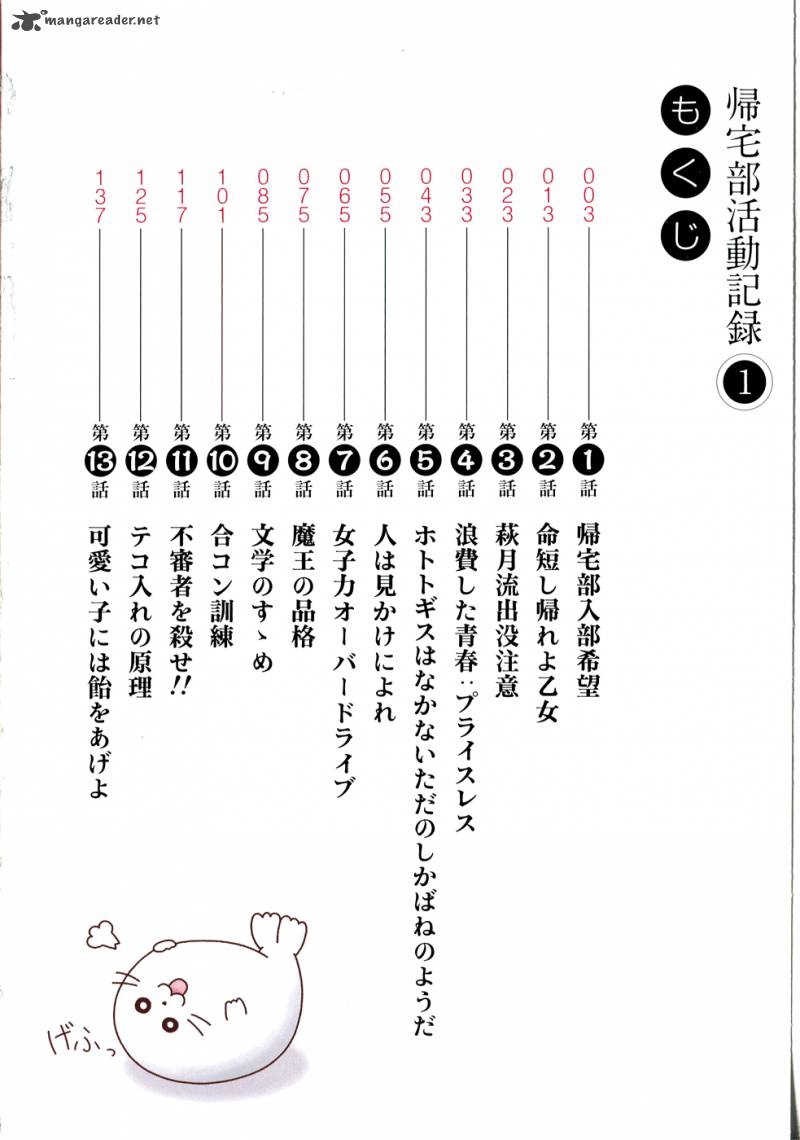 mangareader.net
帰宅部活動記録 1
もくじ
003 第1話 帰宅部入部希望
013 第2話 命短し帰れよ乙女
023 第3話 萩月流出没注意
033 第4話 浪費した青春:プライスレス
043 第5話 ホトトギスはなかないただのしかばねのようだ
055 第6話 人は見かけによれ
065 第7話 女子力オーバードライブ
075 第8話 魔王の品格
085 第9話 文学のすゝめ
101 第10話 合コン訓練
117 第11話 不審者を殺せ!!
125 第12話 テコ入れの原理
137 第13話 可愛い子には飴をあげよ
げふっ